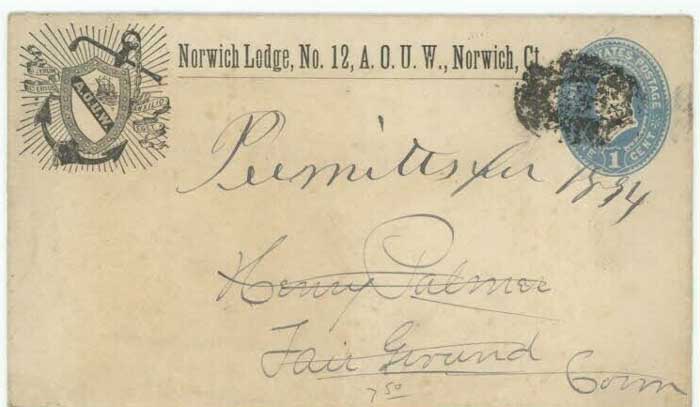 Norwich Lodge, No. 12, A. O. U. W., Norwich, Ct.
A.O.U.W.
STATES POSTAGE
1 CENT
Permitts for 1894
Henry Palmer
Fair Ground
Conn
7 50